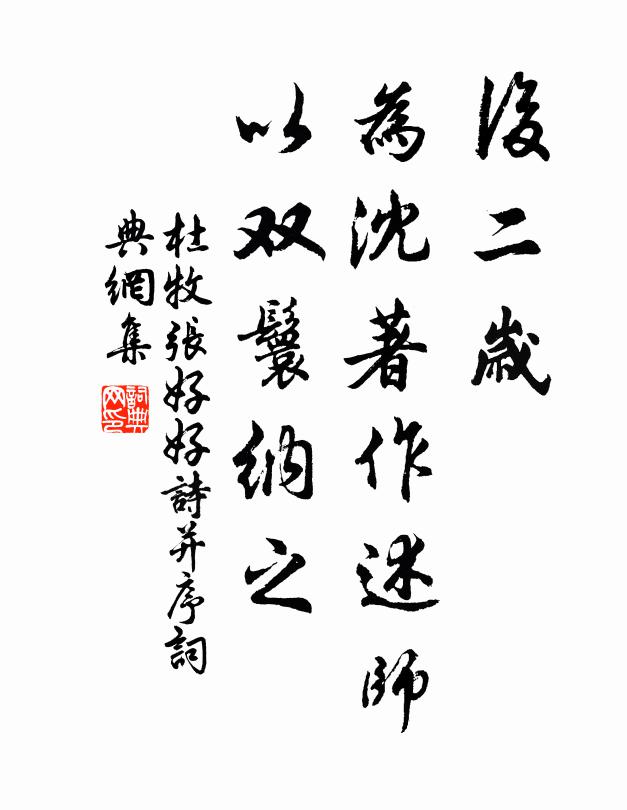 後二歲
為沈著作述師
以双鬟納之
杜牧張好好詩并序詞
典網集
詞典
网印